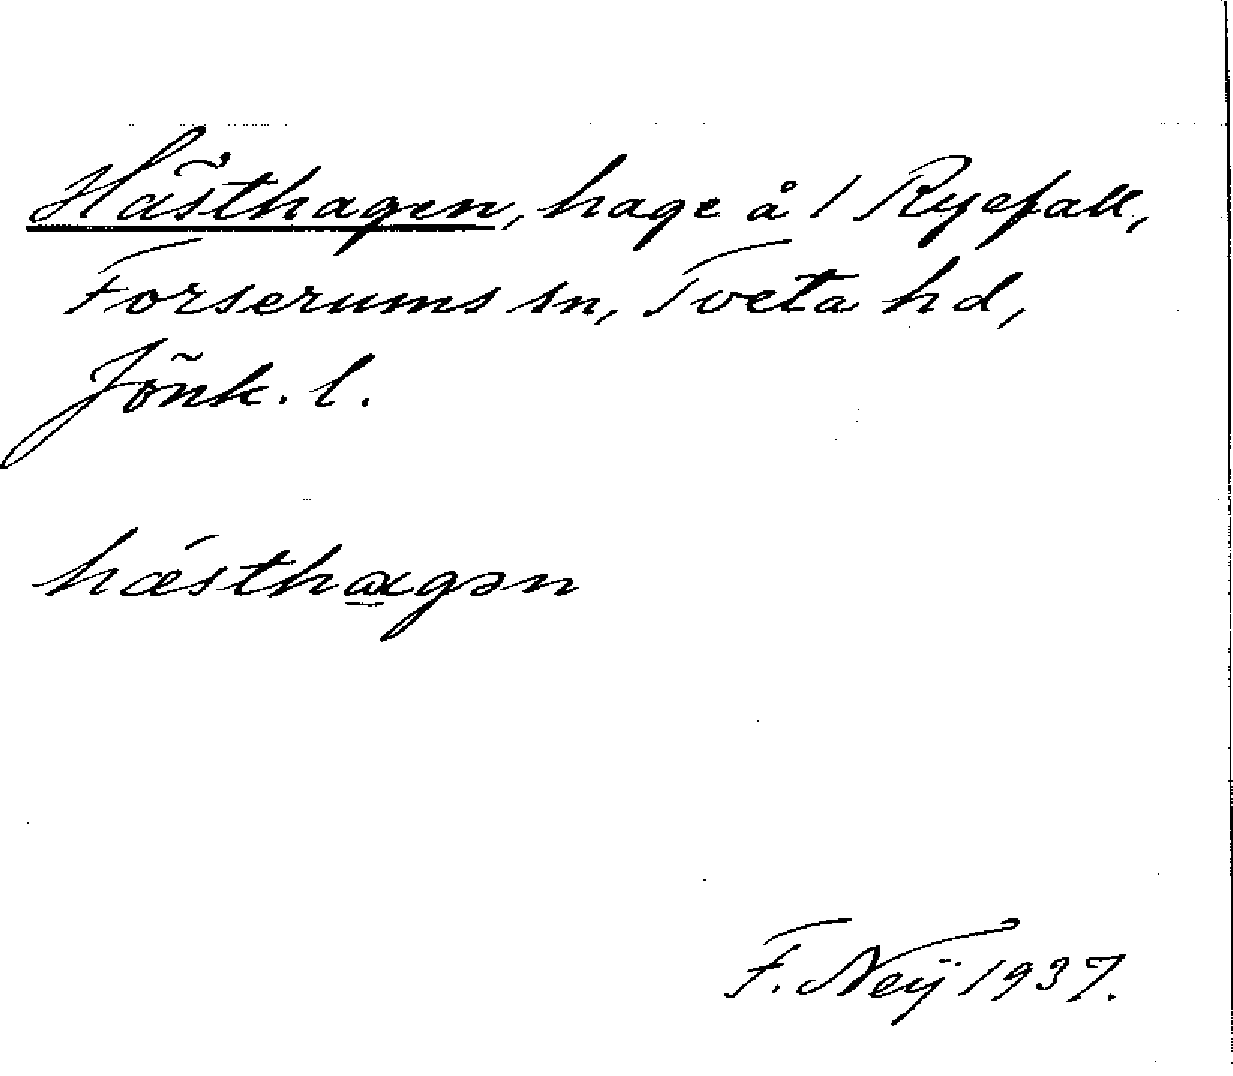 Hästhagen, hage å 1 Ryefall,
Forserums sn, Tveta hd,
Jönk. l.
hǽsthagən
F. Neij 1937.